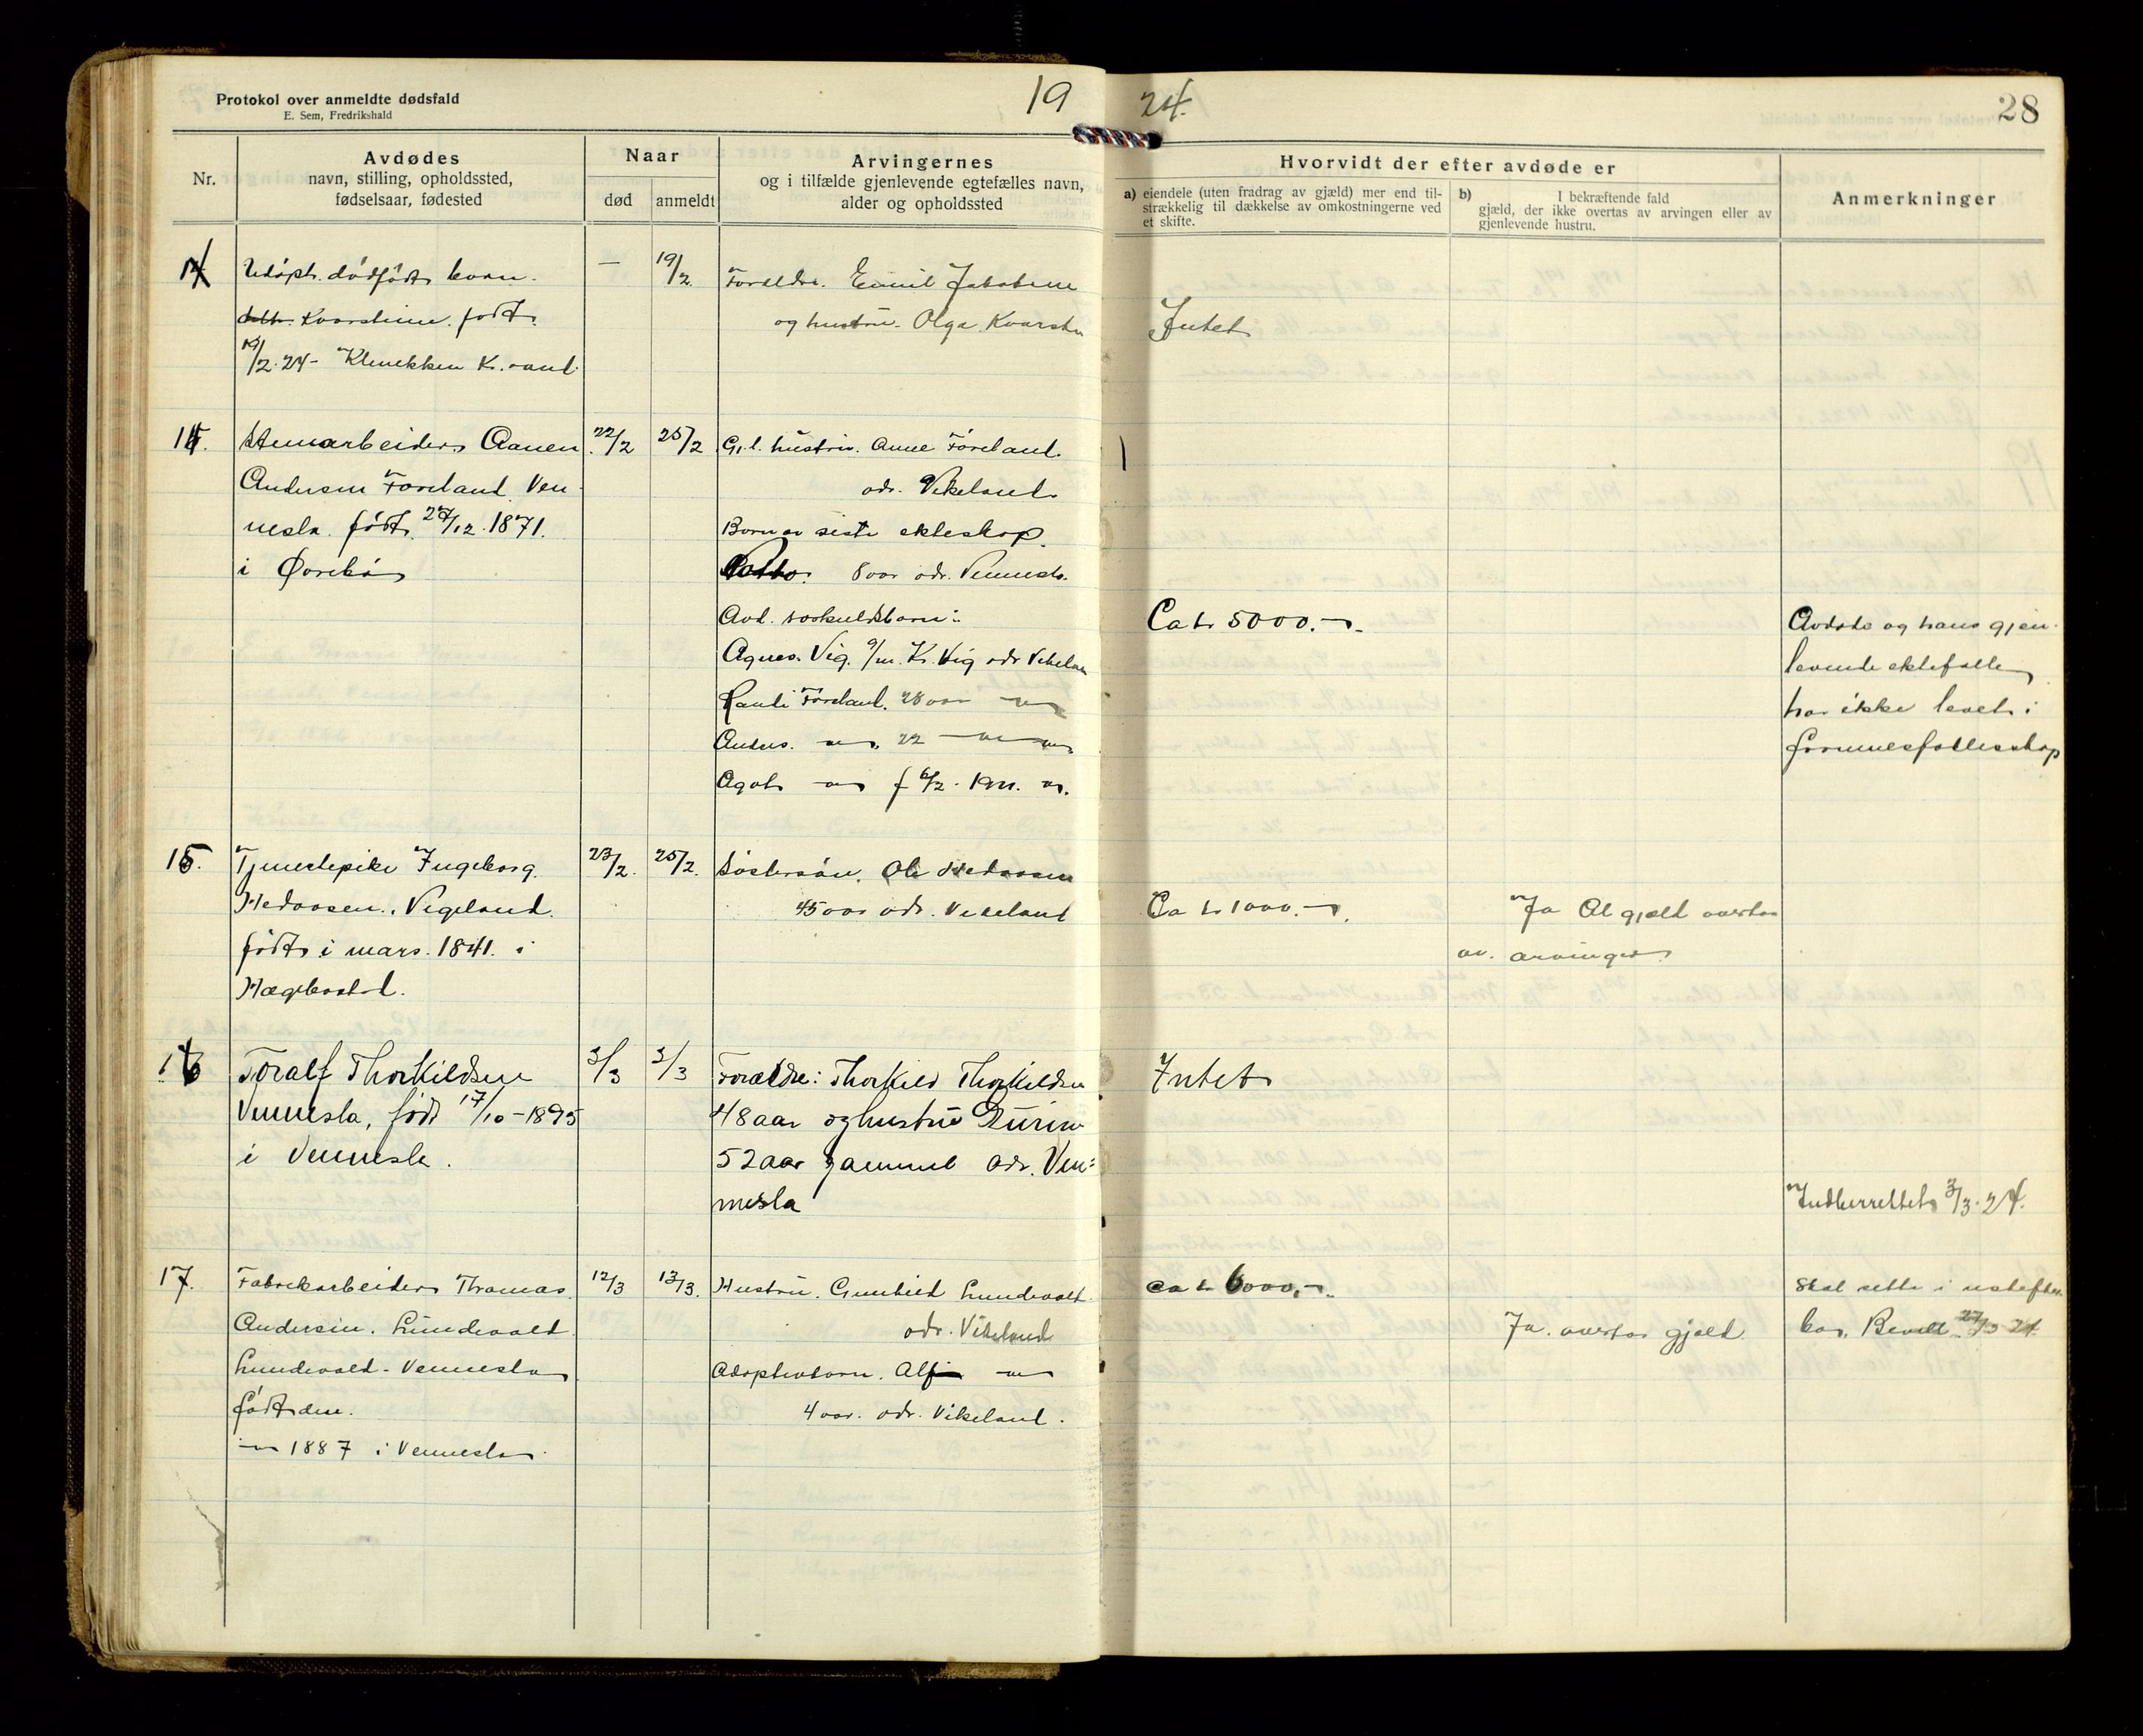 Protokol over anmeldte dødsfald
E. Sem, Fredrikshald
19 24.
28
Nr.
Avdødes
navn, stilling, opholdssted,
fødselsaar, fødested
Naar
død
anmeldt
Arvingernes
og i tilfælde gjenlevende egtefælles navn,
alder og opholdssted
Hvorvidt der efter avdøde er
a) eiendele (uten fradrag av gjæld) mer end til-
strækkelig til dækkelse av omkostningerne ved
et skifte.
b) I bekræftende fald
gjæld, der ikke overtas av arvingen eller av
gjenlevende hustru.
Anmerkninger
Udøpt dødfødt barn
født
19/2 24 - K.sand
—
19/2
Foreldre. Emil Jakobsen
og hustru Olga
Intet
14. Stenarbeider Aanen
Andersen Føreland Ven-
nesla. født 27/12 1871.
i Øvrebø
22/2
25/2
Gj.l. hustru. Anne Føreland.
adr. Vikeland
Barn av siste ekteskap.
8 aar adr. Vennesla.
Avd. særkuldsbarn:
Agnes Vig. g/m. K. Vig adr Vikeland
Føreland. 28 aar
Anders 22
Agot f 6/2
Ca kr 5000.-
Avdøde og hans gjen-
levende ektefelle
har ikke levet i
formuesfellesskap
15. Tjenestepike Ingeborg
Hedaasen, Vigeland.
født i mars. 1841. i
Hægebostad.
23/2.
25/2.
Søstersøn. Ole Hedaasen
45 aar adr. Vikeland
Ca kr 1000.-
Ja Al gjeld overtas
av arvinger
16 Toralf Thorkildsen
Vennesla, født 17/10-1895
i Vennesla.
3/3
3/3
Forældre: Thorkild Thorkildsen
48 aar og hustru Gurine
52 aar gammel adr. Ven-
nesla
Intet
Indberettet 3/3. 24.
17. Fabrikarbeider Thomas
Andersen. Lundevold
Lundevold - Vennesla
født den
1887 i Vennesla
12/3
13/3.
Hustru. Gunhild Lundevold.
adr. Vikeland
Adoptivbarn. Alf
4 aar. adr. Vikeland.
Ca kr 6000.-
Ja. overtar gjeld
Skal sitte i uskiftet
bo. Bevill 27/3 24.